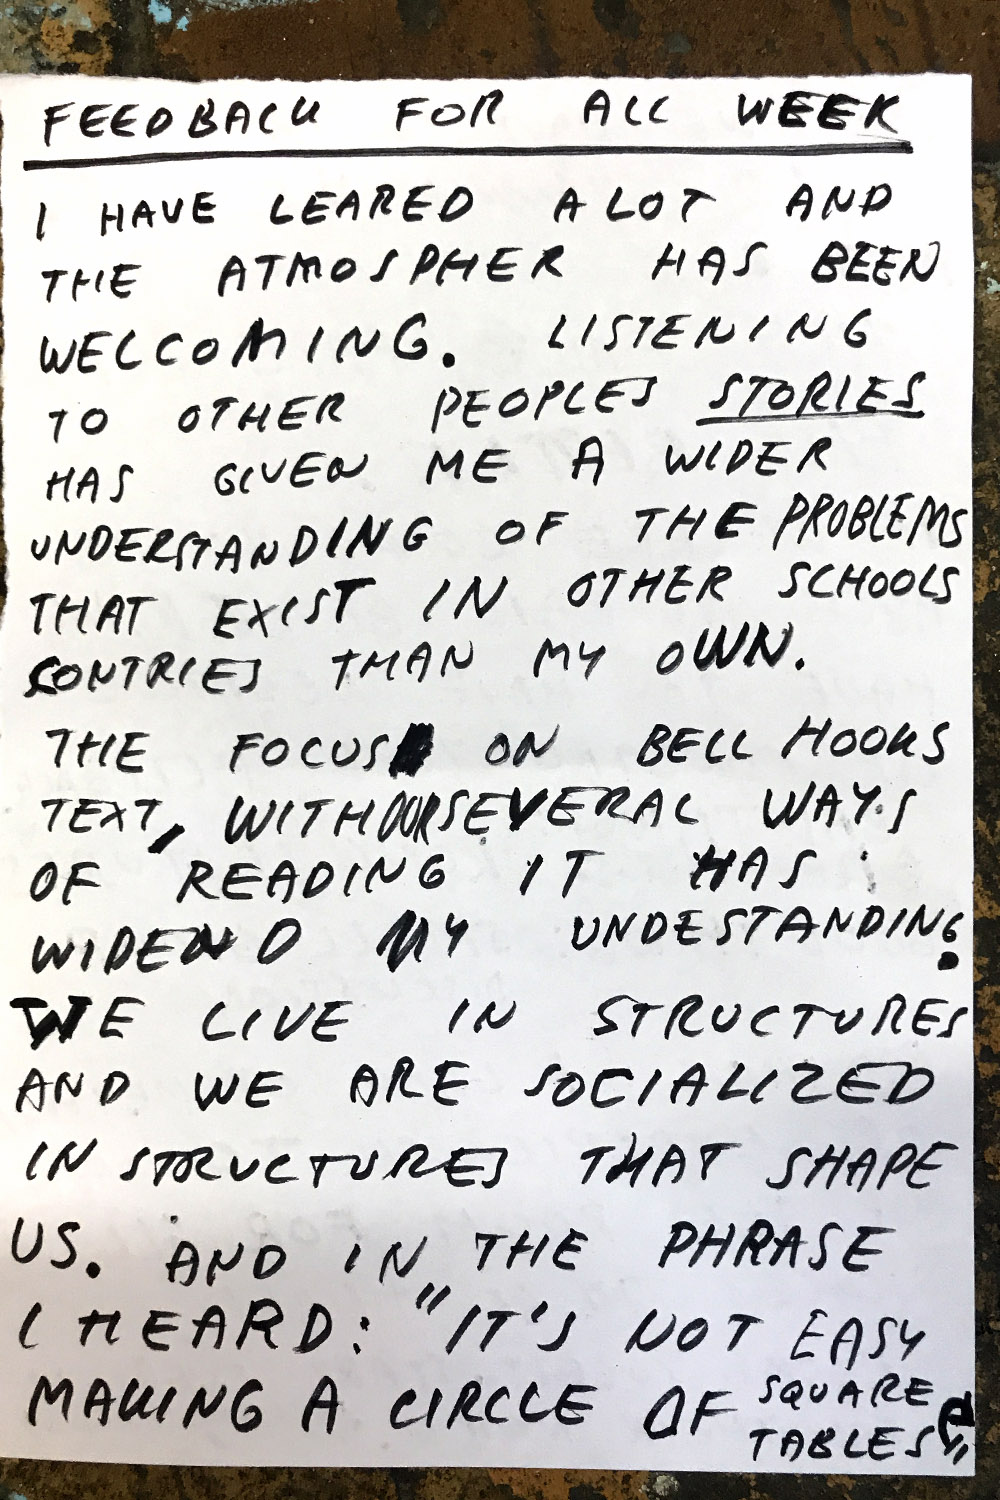 FEEDBACK FOR ALL WEEK
I HAVE LEARED A LOT AND
THE ATMOSPHER HAS BEEN
WELCOMING. LISTENING
TO OTHER PEOPLES STORIES
HAS GIVEN ME A WIDER
UNDERSTANDING OF THE PROBLEMS
THAT EXIST IN OTHER SCHOOLS
CONTRIES THAN MY OWN.
THE FOCUS ON BELL HOOKS
TEXT, WITH OUR SEVERAL WAYS
OF READING IT HAS
WIDEND MY UNDESTANDING.
WE LIVE IN STRUCTURES
AND WE ARE SOCIALIZED
IN STRUCTURES THAT SHAPE
US. AND IN THE PHRASE
I HEARD: "IT'S NOT EASY
MAKING A CIRCLE OF SQUARE
TABLES"